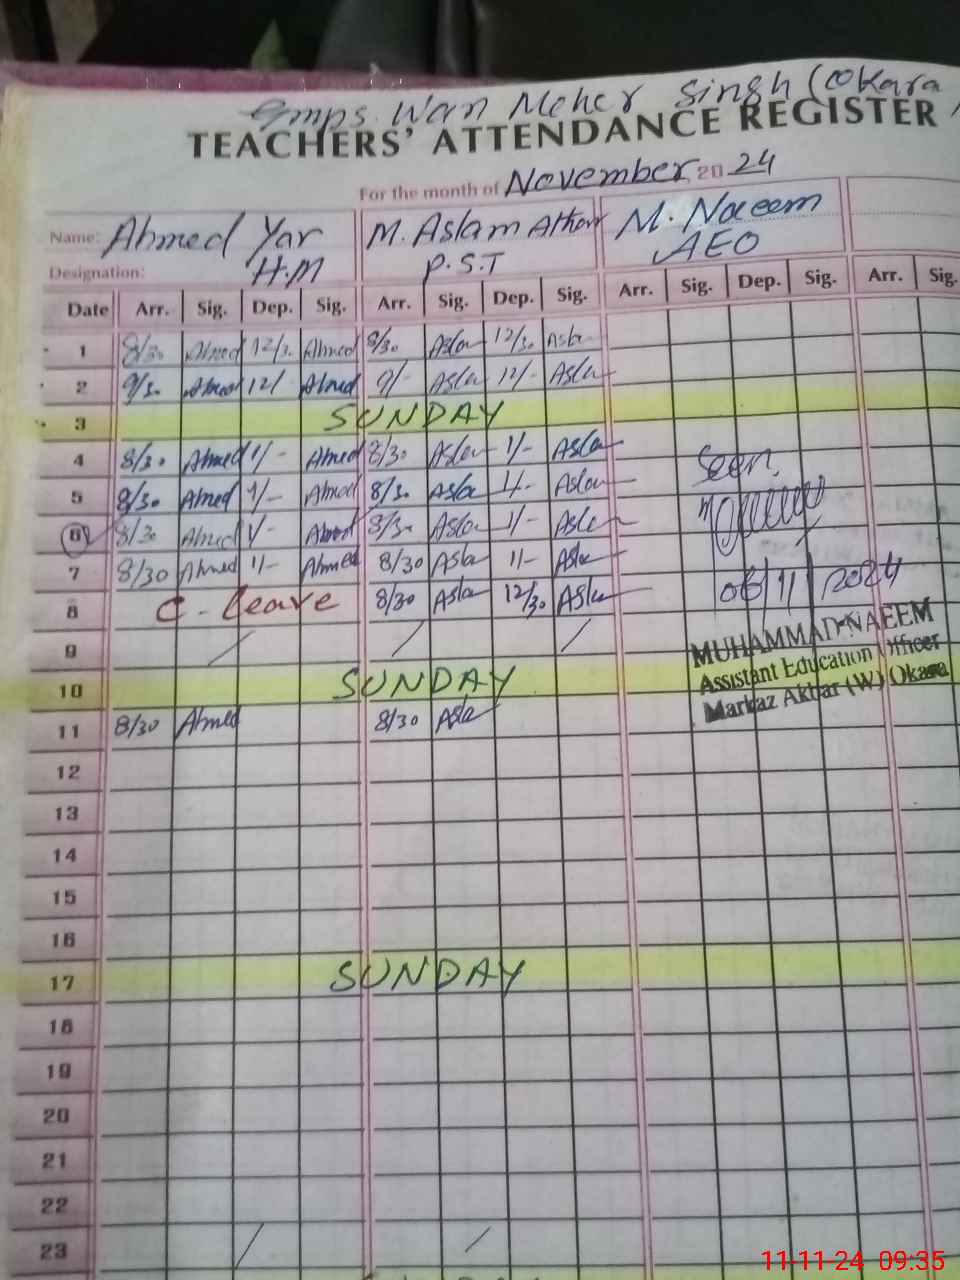 Gmps. Wan Meher Singh (Okara
TEACHERS' ATTENDANCE REGISTER
For the month of November 2024
Name: Ahmed Yar M. Aslam Athar M. Naeem
Designation: H.M P.S.T AEO
Date Arr. Sig. Dep. Sig. Arr. Sig. Dep. Sig. Arr. Sig. Dep. Sig. Arr. Sig.
1 8/30 Ahmed 12/30 Ahmed 8/30 Aslam 12/30 Aslam
2 9/30 Ahmed 12/- Ahmed 9/- Aslam 12/- Aslam
3 SUNDAY
4 8/30 Ahmed 1/- Ahmed 8/30 Aslam 1/- Aslam
Seen
5 8/30 Ahmed 1/- Ahmed 8/30 Aslam 1/- Aslam
6 8/30 Ahmed 1/- Ahmed 8/30 Aslam 1/- Aslam
7 8/30 Ahmed 1/- Ahmed 8/30 Aslam 1/- Aslam
8 C-Leave 8/30 Aslam 12/30 Aslam 06/11/2024
9 / / /
MUHAMMAD NAEEM
Assistant Education Officer
Markaz Akbar (W) Okara
10 SUNDAY
11 8/30 Ahmed 8/30 Aslam
12
13
14
15
16
17 SUNDAY
18
19
20
21
22
23 / /
11-11-24 09:35